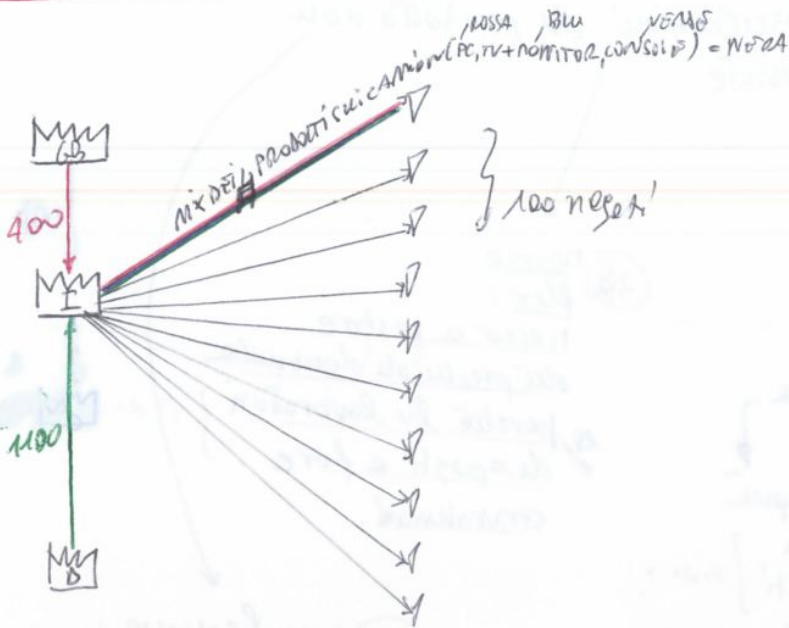 ROSSA BLU VERDE
MIX DEI 4 PRODOTTI SUI CAMION (PC, TV + MONITOR, CONSOLE) = NERA
GB
400
I
100 negozi
1100
D